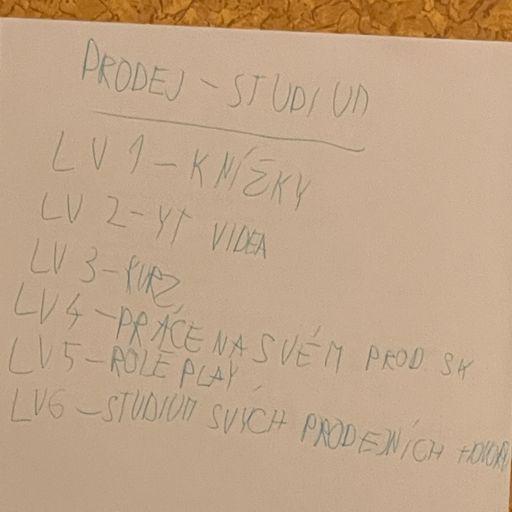 PRODEJ - STUDIUM
LV 1 - KNÍŽKY
LV 2 - YT VIDEA
LV 3 - KURZ
LV 4 - PRÁCE NA SVÉM PROD. SK
LV 5 - ROLE PLAY
LV6 - STUDIUM SVÝCH PRODEJNÍCH